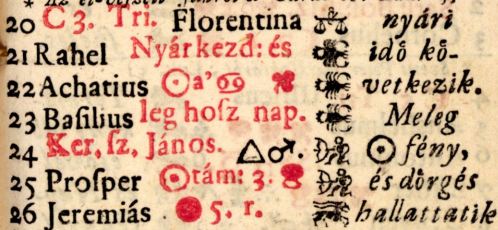 20 C 3. Tri. Florentina ♎ nyári
21 Rahel Nyárkezd: és idő kö-
22 Achatius ☉ a' ♋ vetkezik.
23 Baſilius leg hoſz nap. Meleg
24 Ker. ſz. János. △♂. ☉ fény,
25 Proſper ☉ tám: 3. és dörgés
26 Jeremiás 5. r. hallattatik